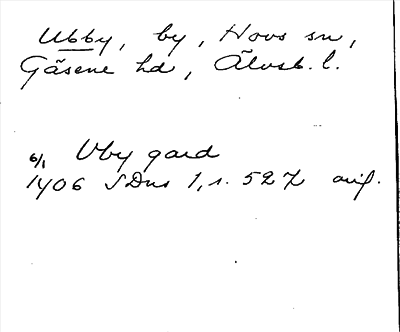 Ubby, by, Hovs sn,
Gäsene hd, Älvsb. l.
Vby gard
6/1 1406 SDns 1, s. 527 orig.